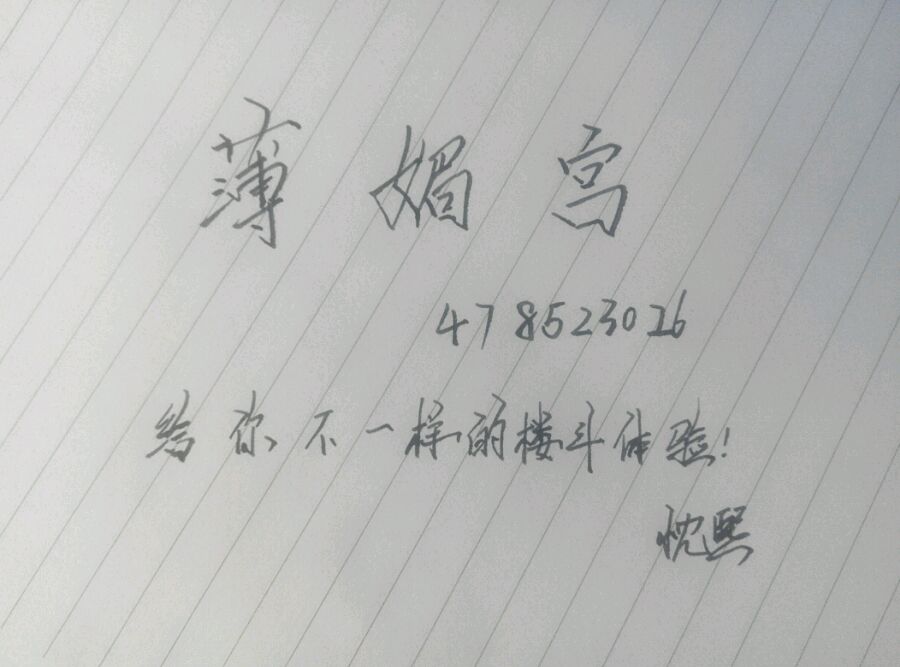 薄媚宫
478523026
给你不一样的楼斗体验!
忱熙